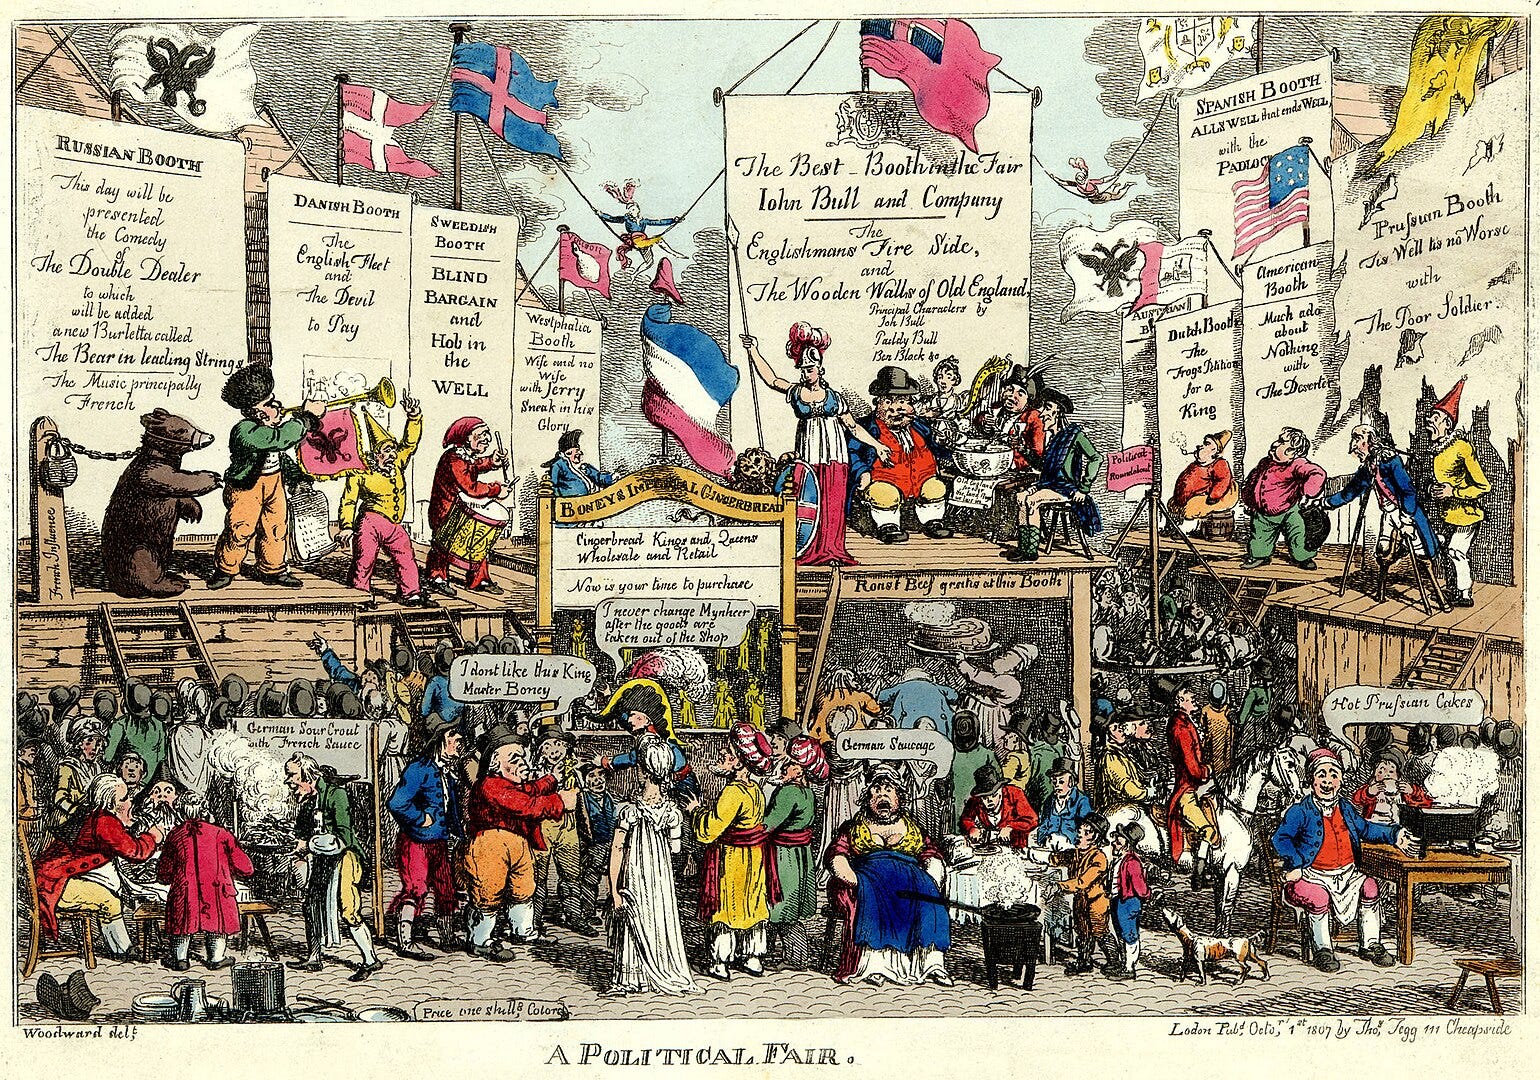 RUSSIAN BOOTH
This day will be
presented
the Comedy
of
The Double Dealer
to which
will be added
a new Burletta called
The Bear in leading Strings
The Music principally
French
French Influence
DANISH BOOTH
The
English Fleet
and
The Devil
to Pay
SWEEDISH
BOOTH
BLIND
BARGAIN
and
Hob in
the
WELL
Westphalia
Booth
Wife and no
Wife
with Jerry
Sneak in his
Glory
The Best Booth in the Fair
Iohn Bull and Company
The
Englishmans Fire Side,
and
The Wooden Walls of Old England,
Principal Characters by
Joh Bull
Paddy Bull
Ben Block &c
Roast Beef gratis at this Booth
SPANISH BOOTH
ALLS WELL that ends WELL,
with the
PADLOCK
AUSTRIAN
B
Dutch Booth
The
Frogs Petition
for a
King
American
Booth
Much ado
about
Nothing
with
The Deserter
Prussian Booth
Tis Well tis no Worse
with
The Poor Soldier
Political
Roundabout
BONEYS IMPERIAL GINGERBREAD
Gingerbread Kings and Queens
Wholesale and Retail
Now is your time to purchase
I never change Mynheer
after the goods are
taken out of the Shop
I dont like this King
Master Boney
German Sour Crout
with French Sauce
German Saucage
Hot Prussian Cakes
Price one shillg Colord
Woodward delt
Lodon Pubd Octor 1st 1807 by Thos Tegg 111 Cheapside
A POLITICAL FAIR.